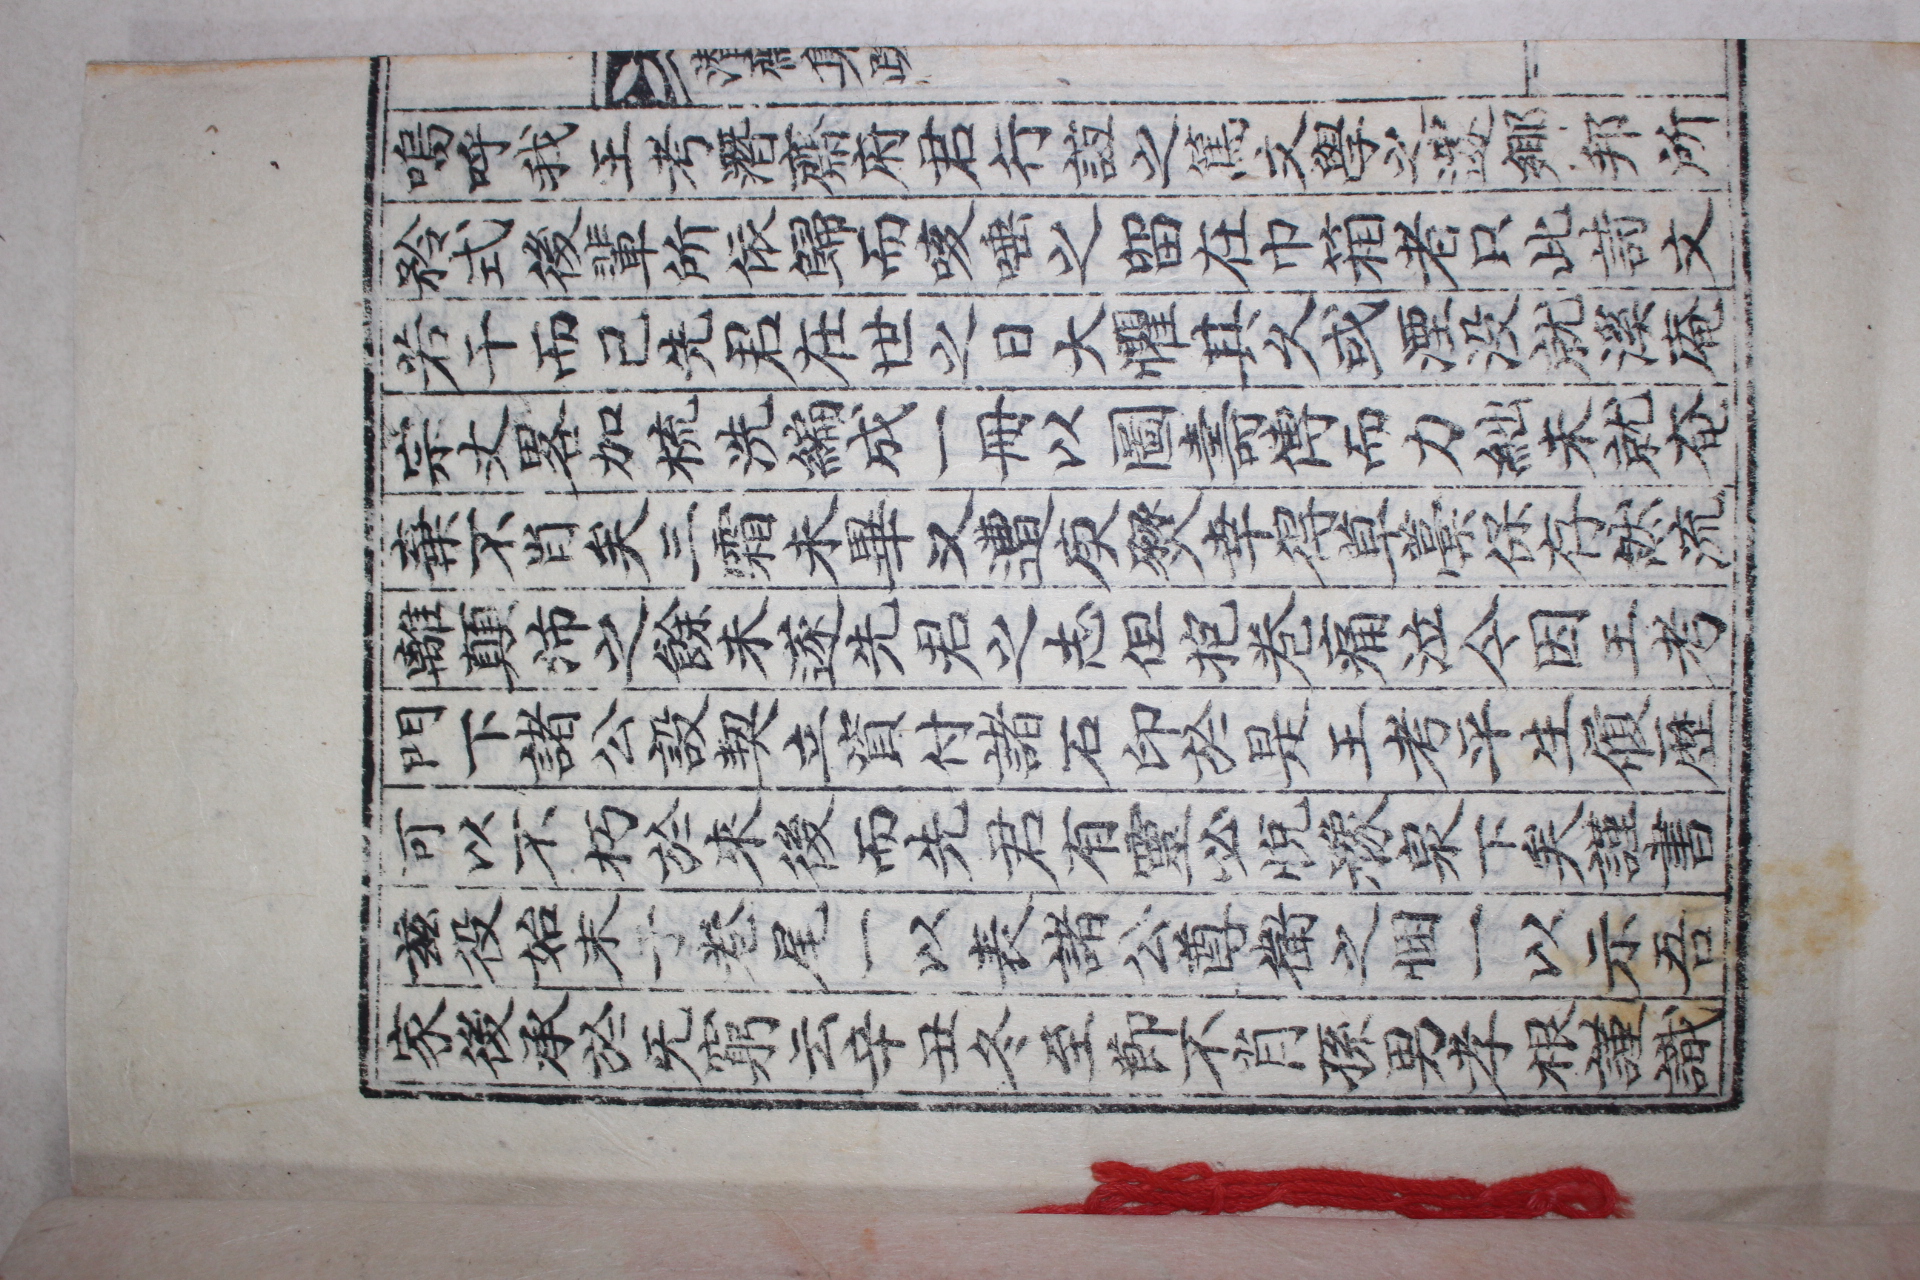 潛齋集跋
嗚呼我王考潛齋府君行誼之篤文學之邃鄕邦所
矜式後輩所依歸而咳唾之留在巾箱者只此詩文
若干而已先君在世之日大懼其久或湮没就溪庵
宗丈畧加梳洗編成一冊以圖壽傳而力絀未就奄
棄不肖矣三霜未畢又遭庚燹幸得草藁保存然流
離顛沛之餘未遂先君之志但抱巻痛泣今因王考
門下諸公設契立資付諸石印於是王考平生履歷
可以不朽於來後而先君有靈必悅豫泉下矣謹書
玆役始末于巻尾一以表諸公尊衛之悃一以示吾
家後承於旡窮云辛丑冬至節不肖孫男孝根謹識